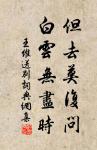 但去莫復問
白雲無盡時
王維送別詞典網集